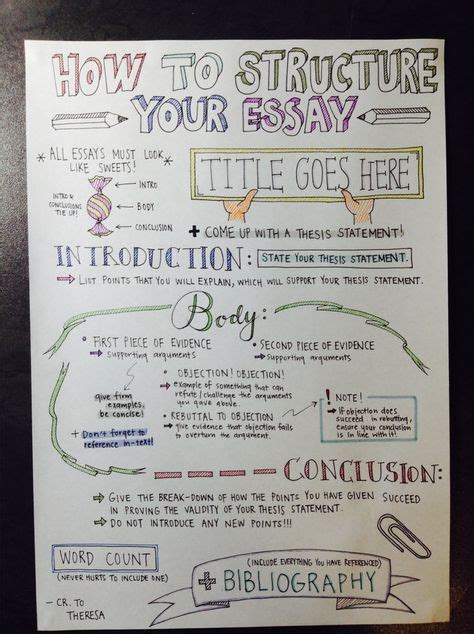 HOW TO STRUCTURE
YOUR ESSAY
* ALL ESSAYS MUST LOOK *
LIKE SWEETS!
INTRO
BODY
CONCLUSION
INTRO &
CONCLUSIONS
TIE UP!
TITLE GOES HERE
+ COME UP WITH A THESIS STATEMENT!
INTRODUCTION: STATE YOUR THESIS STATEMENT.
→ LIST POINTS THAT YOU WILL EXPLAIN, WHICH WILL SUPPORT YOUR THESIS STATEMENT.
Body:
• FIRST PIECE OF EVIDENCE
→ supporting arguments
• SECOND PIECE OF EVIDENCE
→ supporting arguments
• OBJECTION! OBJECTION!
→ example of something that can
refute/challenge the arguments
you gave above.
• REBUTTAL TO OBJECTION
→ give evidence that objection fails
to overturn the argument.
give firm
examples,
be concise!
+ Don't forget to
reference in-text!
! NOTE!
→ If objection does
succeed in rebutting,
ensure your conclusion
is in line with it!
CONCLUSION:
→ GIVE THE BREAK-DOWN OF HOW THE POINTS YOU HAVE GIVEN SUCCEED
IN PROVING THE VALIDITY OF YOUR THESIS STATEMENT.
→ DO NOT INTRODUCE ANY NEW POINTS!!!
WORD COUNT
(NEVER HURTS TO INCLUDE ONE)
(INCLUDE EVERYTHING YOU HAVE REFERENCED)
+ BIBLIOGRAPHY
- CR. TO
THERESA